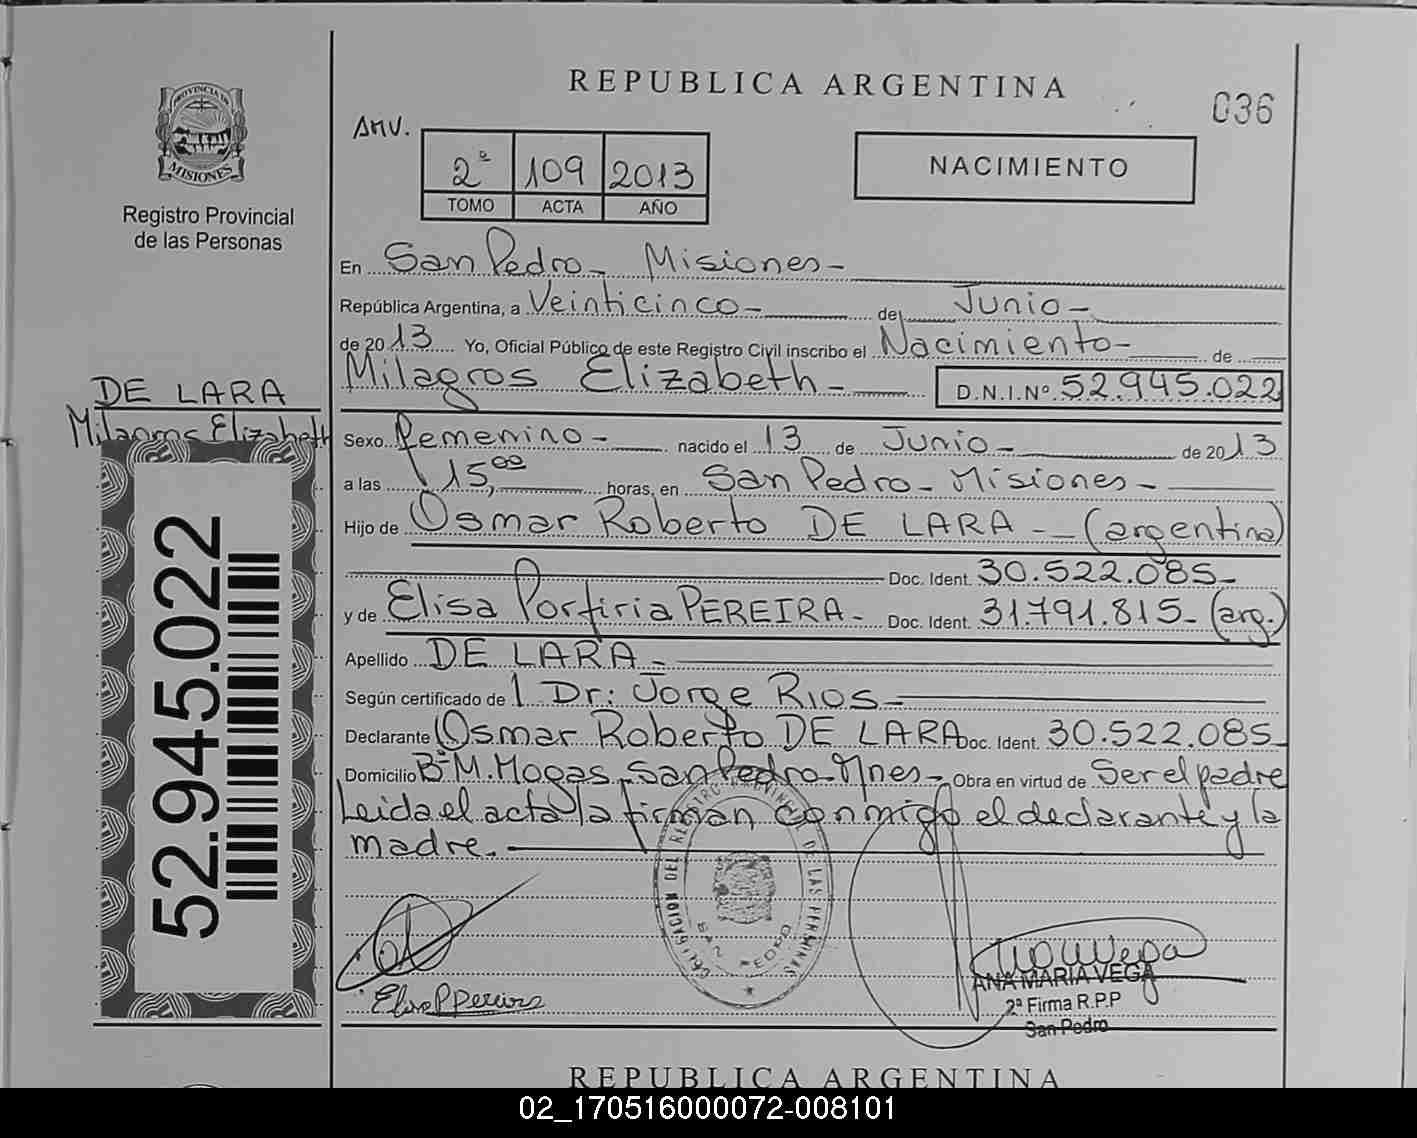 REPUBLICA ARGENTINA
036
PROVINCIA DE
MISIONES
Registro Provincial
de las Personas
AMV.
2º 109 2013
TOMO ACTA AÑO
NACIMIENTO
En San Pedro - Misiones -
República Argentina, a Veinticinco - de Junio -
de 2013 Yo, Oficial Público de este Registro Civil inscribo el Nacimiento - de
Milagros Elizabeth - D.N.I.Nº 52.945.022
DE LARA
Milagros Elizabeth
Sexo femenino - nacido el 13 de Junio - de 2013
a las 15,00 horas, en San Pedro - Misiones -
Hijo de Osmar Roberto DE LARA - (argentina)
Doc. Ident. 30.522.085 -
y de Elisa Porfiria PEREIRA - Doc. Ident. 31.791.815 - (arg.)
Apellido DE LARA -
Según certificado de Dr: Jorge RIOS -
Declarante Osmar Roberto DE LARA Doc. Ident. 30.522.085 -
Domicilio Bº M. Mogas - San Pedro - Mnes - Obra en virtud de Ser el padre
Leida el acta la firman conmigo el declarante y la
madre. -
52.945.022
SAN PEDRO
Elisa P Pereira
ANA MARIA VEGA
2ª Firma R.P.P
San Pedro
REPUBLICA ARGENTINA
02_170516000072-008101